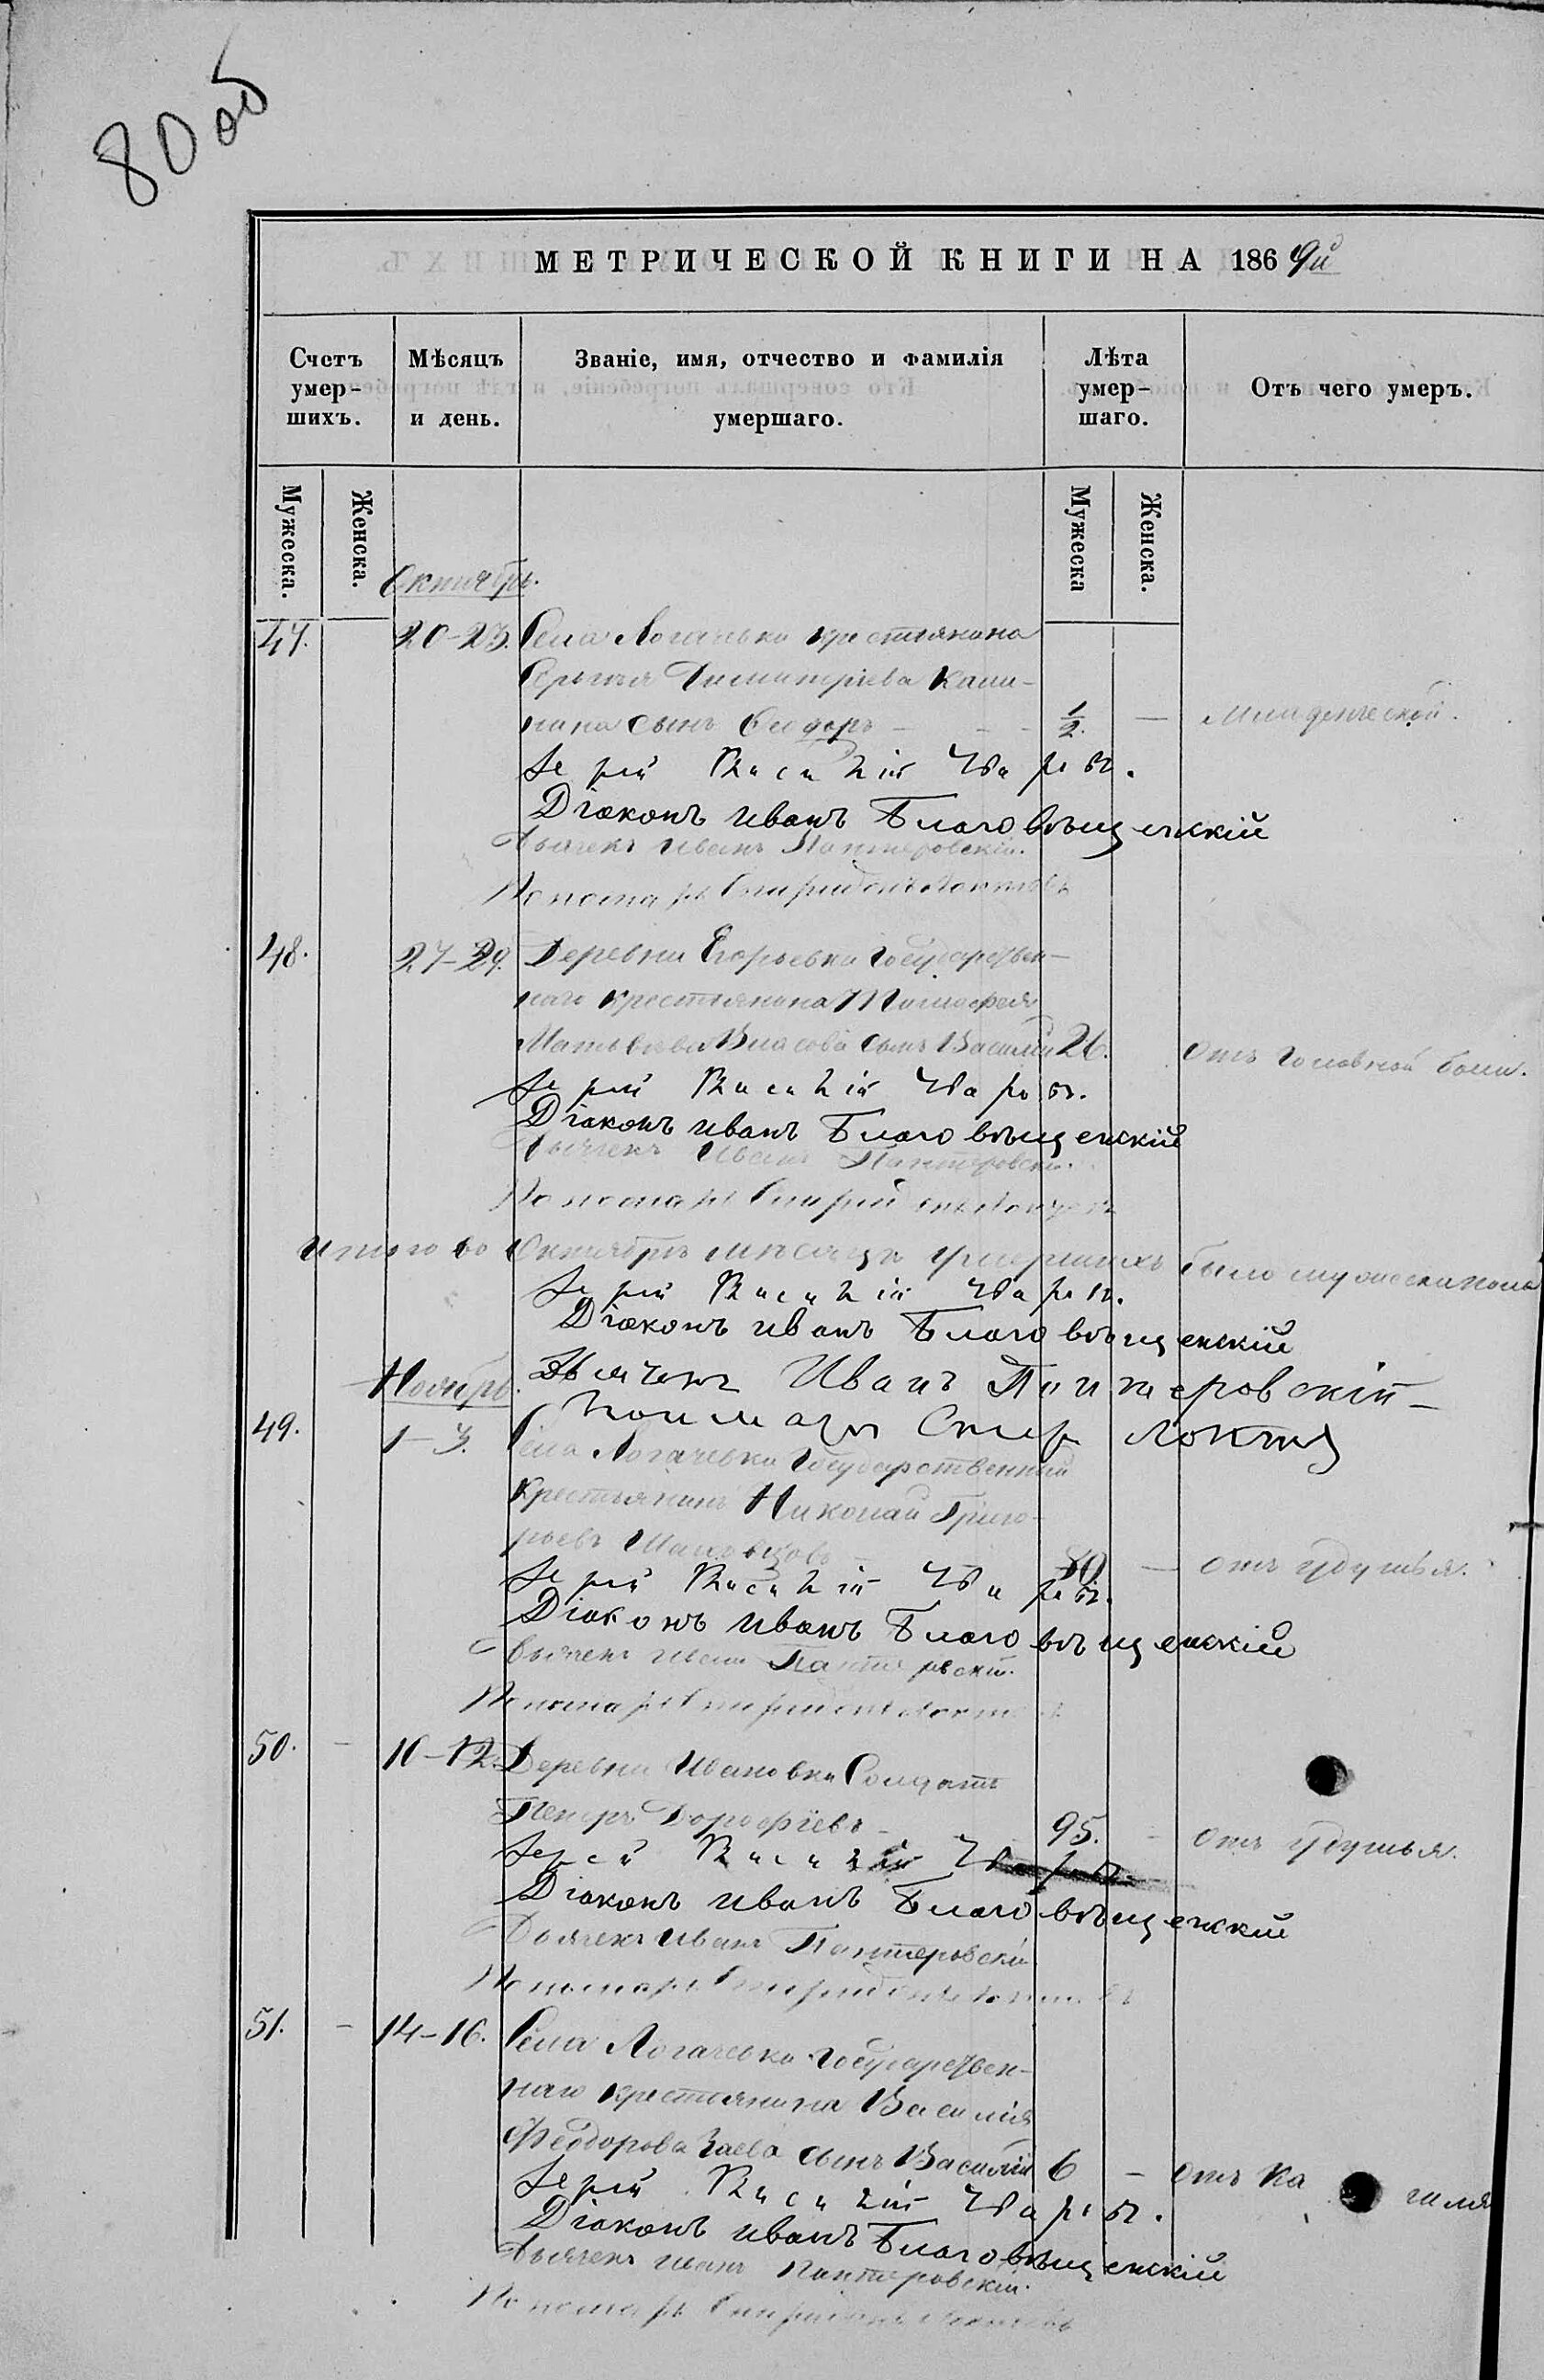 80 об
МЕТРИЧЕСКОЙ КНИГИ НА 1869й
Счетъ умер-шихъ.
Мѣсяцъ и день.
Званіе, имя, отчество и фамилія умершаго.
Лѣта умер-шаго.
Отъ чего умеръ.
Мужеска.
Женска.
Мужеска
Женска.
Октябрь.
47. 20-23. Села Логачевки крестьянина
Сергѣя Димитріева Каши-
нина сынъ Феодоръ - - - 1/2. — Младенческой.
Іерей Василій Уваровъ.
Діаконъ Иванъ Благовѣщенскій
Дьячекъ Иванъ Пантеровскій.
Пономарь Спиридонъ Локтевъ
48. 27-29. Деревни Егорьевки Государствен-
наго крестьянина Тимофея
Матвѣева Власова сынъ Василій 26. отъ головной боли.
Іерей Василій Уваровъ.
Діаконъ Иванъ Благовѣщенскій
Дьячекъ Иванъ Пантеровскій.
Пономарь Спиридонъ Локтевъ
Итого во Октябрѣ мѣсяцѣ умершихъ было мужеска пола
Іерей Василій Уваровъ.
Діаконъ Иванъ Благовѣщенскій
Дьячекъ Иванъ Пантеровскій
Ноябрь.
Пономарь Спир Локтев
49. 1-3. Села Логачевки Государственный
Крестьянинъ Николай Григо-
рьевъ — 80 — отъ удушья.
Іерей Василій Уваровъ.
Діаконъ Иванъ Благовѣщенскій
Дьячекъ Иванъ Пантеровскій.
Пономарь Спиридонъ Локтевъ
50. - 10-12. Деревни Ивановки Солдатъ
Петръ Дорофѣевъ - 95. - отъ удушья.
Іерей Василій Уваровъ.
Діаконъ Иванъ Благовѣщенскій
Дьячекъ Иванъ Пантеровскій
Пономарь Спиридонъ Локтевъ
51. - 14-16. Села Логачевки Государствен-
наго крестьянина Василія
Феодорова Заева сынъ Василій 6 - отъ Ка шля
Іерей Василій Уваровъ.
Діаконъ Иванъ Благовѣщенскій
Дьячекъ Иванъ Пантеровскій.
Пономарь Спиридонъ Локтевъ